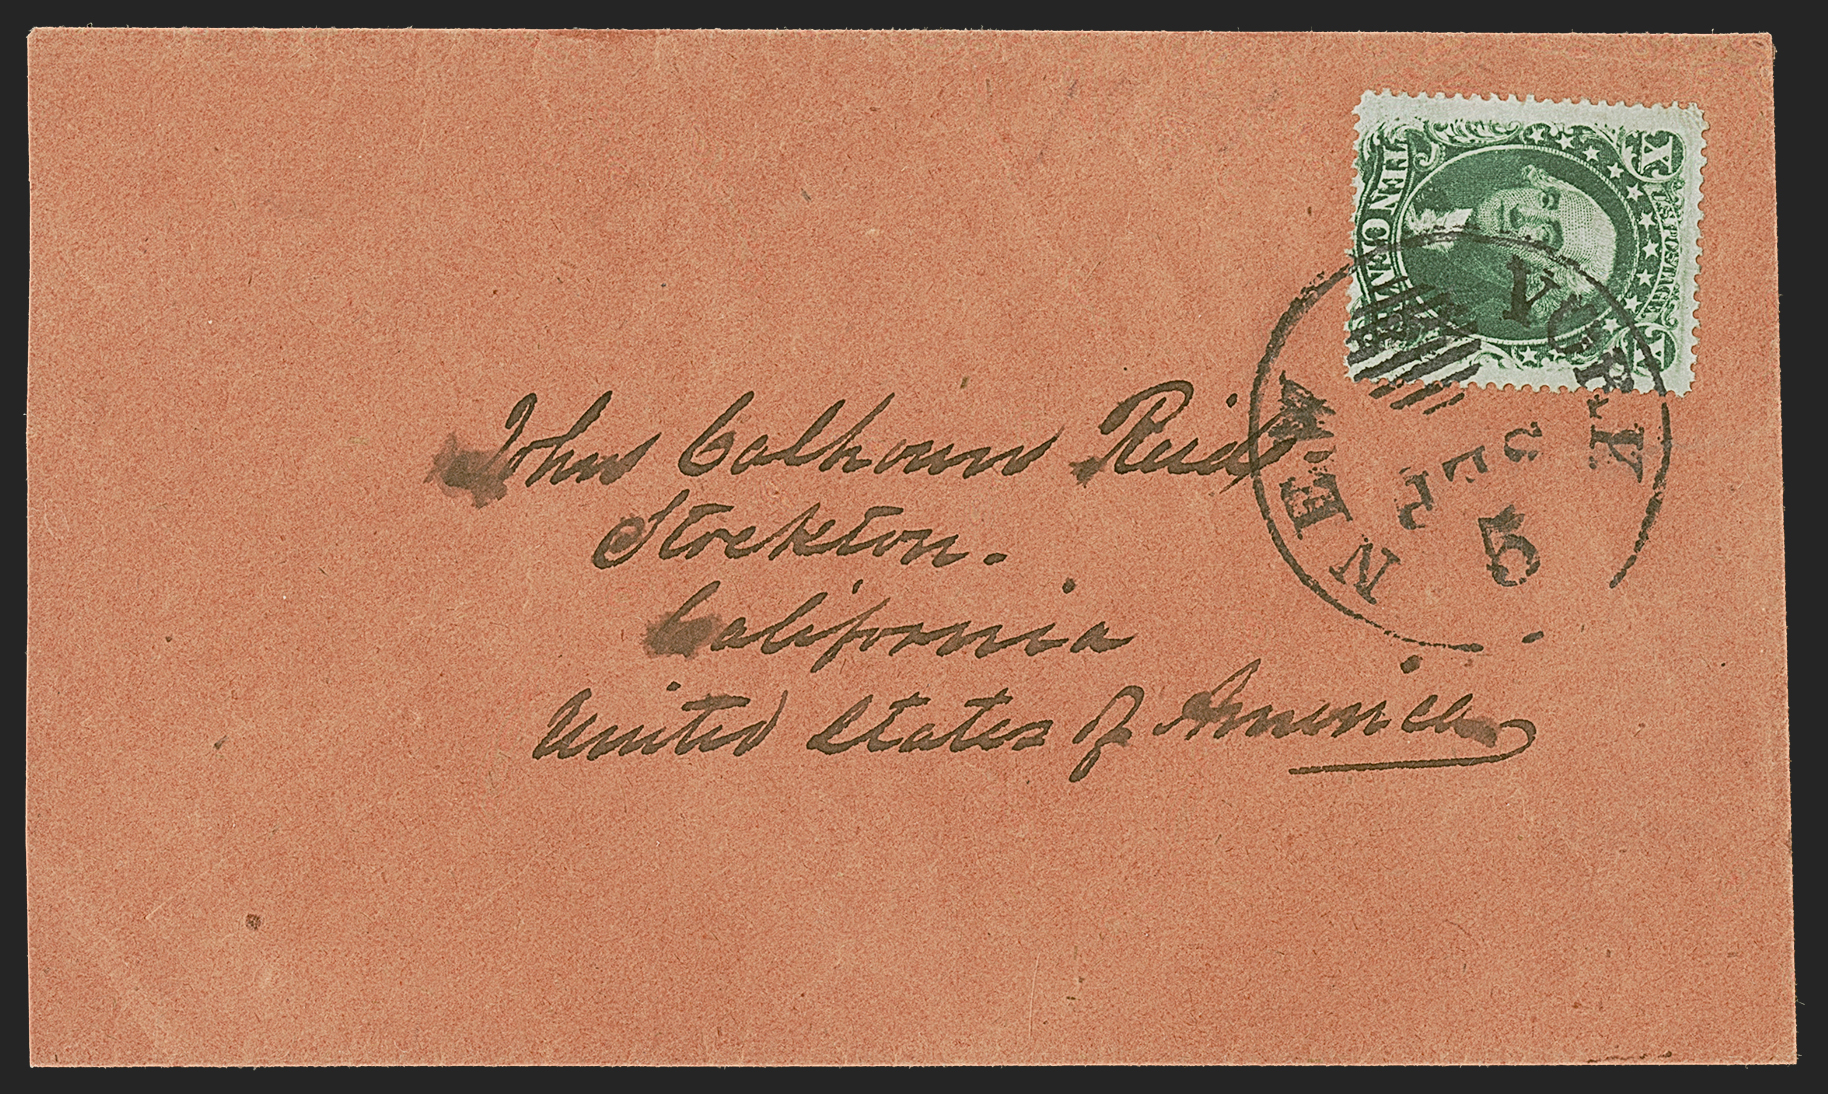 John Calhoun Reid,
Stockton.
California
United States of America
X U.S. POSTAGE X
TEN CENTS
NEW YORK
SEP
5